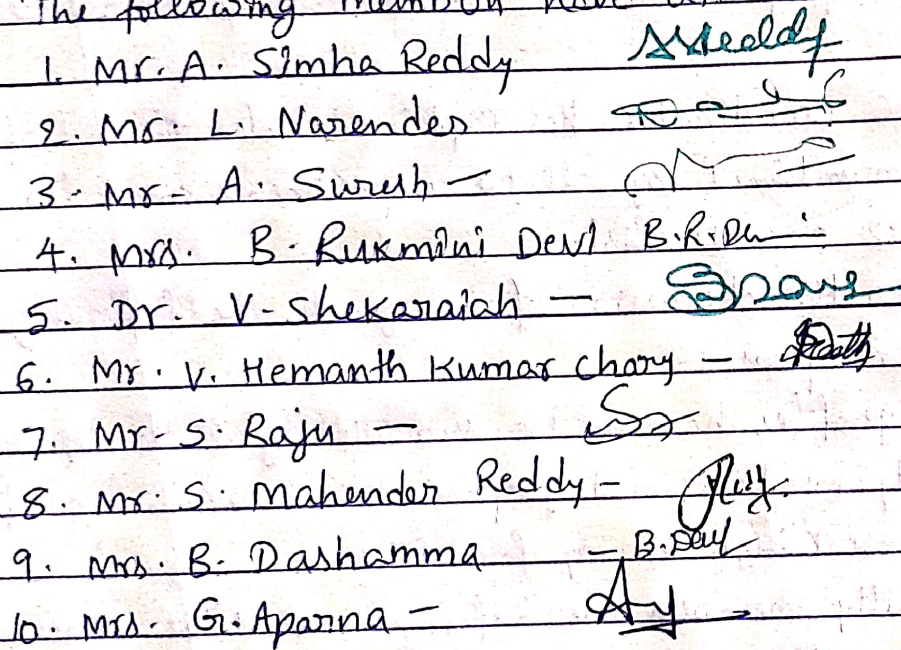 The following
1. Mr. A. Simha Reddy
2. Mr. L. Narender
3. Mr - A. Suresh -
4. Mrs. B. Rukmini Devi B.R.De
5. Dr. V. Shekaraiah -
6. Mr. V. Hemanth Kumar Chary -
7. Mr - S. Raju -
8. Mr. S. Mahender Reddy -
9. Mrs. B. Dashamma -
10. Mrs. G. Aparna -